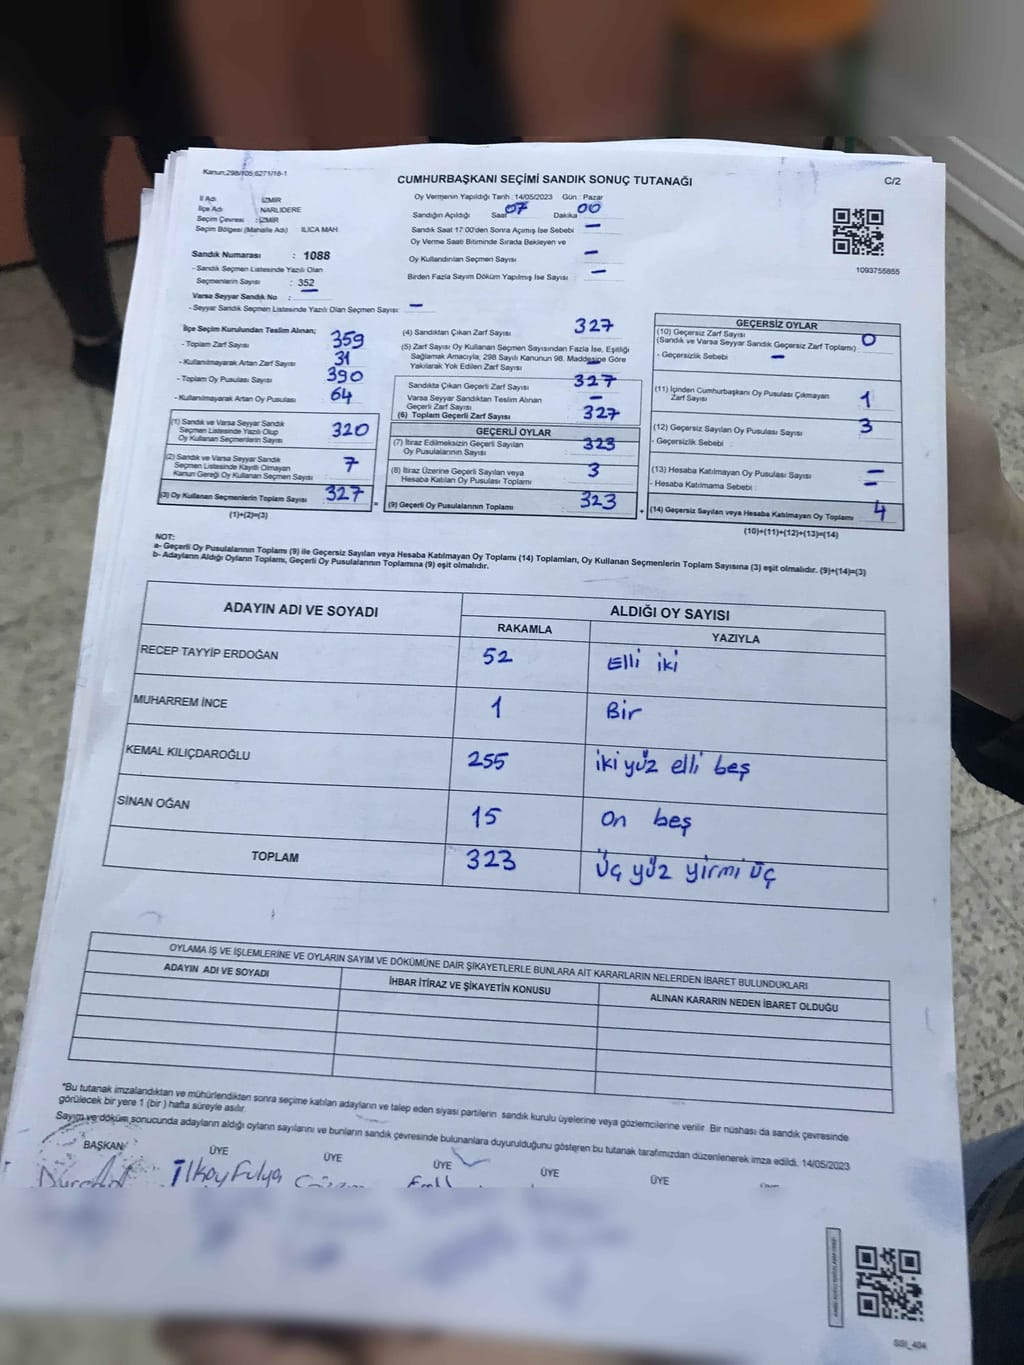 Kanun;298/105;6271/18-1
CUMHURBAŞKANI SEÇİMİ SANDIK SONUÇ TUTANAĞI
C/2
İl Adı : İZMİR
İlçe Adı : NARLIDERE
Seçim Çevresi : İZMİR
Seçim Bölgesi (Mahalle Adı) ILICA MAH.
Sandık Numarası : 1088
- Sandık Seçmen Listesinde Yazılı Olan
Seçmenlerin Sayısı : 352
Varsa Seyyar Sandık No :
- Seyyar Sandık Seçmen Listesinde Yazılı Olan Seçmen Sayısı: –
Oy Vermenin Yapıldığı Tarih : 14/05/2023 Gün : Pazar
Sandığın Açıldığı Saat 07 Dakika 00
Sandık Saat 17:00'den Sonra Açımış İse Sebebi –
Oy Verme Saati Bitiminde Sırada Bekleyen ve
Oy Kullandırılan Seçmen Sayısı –
Birden Fazla Sayım Döküm Yapılmış İse Sayısı –
1093755855
İlçe Seçim Kurulundan Teslim Alınan;
- Toplam Zarf Sayısı 359
- Kullanılmayarak Artan Zarf Sayısı 31
- Toplam Oy Pusulası Sayısı 390
- Kullanılmayarak Artan Oy Pusulası 64
(1) Sandık ve Varsa Seyyar Sandık
Seçmen Listesinde Yazılı Olup
Oy Kullanan Seçmenlerin Sayısı 320
(2) Sandık ve Varsa Seyyar Sandık
Seçmen Listesinde Kayıtlı Olmayan
Kanun Gereği Oy Kullanan Seçmen Sayısı 7
(3) Oy Kullanan Seçmenlerin Toplam Sayısı 327
(1)+(2)=(3)
(4) Sandıktan Çıkan Zarf Sayısı 327
(5) Zarf Sayısı Oy Kullanan Seçmen Sayısından Fazla İse, Eşitliği
Sağlamak Amacıyla; 298 Sayılı Kanunun 98. Maddesine Göre
Yakılarak Yok Edilen Zarf Sayısı –
Sandıkta Çıkan Geçerli Zarf Sayısı 327
Varsa Seyyar Sandıktan Teslim Alınan
Geçerli Zarf Sayısı –
(6) Toplam Geçerli Zarf Sayısı 327
GEÇERLİ OYLAR
(7) İtiraz Edilmeksizin Geçerli Sayılan
Oy Pusulalarının Sayısı 323
(8) İtiraz Üzerine Geçerli Sayılan veya
Hesaba Katılan Oy Pusulası Toplamı 3
= (9) Geçerli Oy Pusulalarının Toplamı 323
GEÇERSİZ OYLAR
(10) Geçersiz Zarf Sayısı
(Sandık ve Varsa Seyyar Sandık Geçersiz Zarf Toplamı) 0
- Geçersizlik Sebebi –
(11) İçinden Cumhurbaşkanı Oy Pusulası Çıkmayan
Zarf Sayısı 1
(12) Geçersiz Sayılan Oy Pusulası Sayısı 3
- Geçersizlik Sebebi :
(13) Hesaba Katılmayan Oy Pusulası Sayısı –
- Hesaba Katılmama Sebebi : –
+ (14) Geçersiz Sayılan veya Hesaba Katılmayan Oy Toplamı 4
(10)+(11)+(12)+(13)=(14)
NOT:
a- Geçerli Oy Pusulalarının Toplamı (9) ile Geçersiz Sayılan veya Hesaba Katılmayan Oy Toplamı (14) Toplamları, Oy Kullanan Seçmenlerin Toplam Sayısına (3) eşit olmalıdır. (9)+(14)=(3)
b- Adayların Aldığı Oyların Toplamı, Geçerli Oy Pusulalarının Toplamına (9) eşit olmalıdır.
ADAYIN ADI VE SOYADI
ALDIĞI OY SAYISI
RAKAMLA YAZIYLA
RECEP TAYYİP ERDOĞAN 52 Elli iki
MUHARREM İNCE 1 Bir
KEMAL KILIÇDAROĞLU 255 iki yüz elli beş
SİNAN OĞAN 15 on beş
TOPLAM 323 üç yüz yirmi üç
OYLAMA İŞ VE İŞLEMLERİNE VE OYLARIN SAYIM VE DÖKÜMÜNE DAİR ŞİKAYETLERLE BUNLARA AİT KARARLARIN NELERDEN İBARET BULUNDUKLARI
ADAYIN ADI VE SOYADI İHBAR İTİRAZ VE ŞİKAYETİN KONUSU ALINAN KARARIN NEDEN İBARET OLDUĞU
*Bu tutanak imzalandıktan ve mühürlendikten sonra seçime katılan adayların ve talep eden siyasi partilerin sandık kurulu üyelerine veya gözlemcilerine verilir. Bir nüshası da sandık çevresinde
görülecek bir yere 1 (bir ) hafta süreyle asılır.
Sayım ve döküm sonucunda adayların aldığı oyların sayılarını ve bunların sandık çevresinde bulunanlara duyurulduğunu gösteren bu tutanak tarafımızdan düzenlenerek imza edildi. 14/05/2023
BAŞKAN ÜYE ÜYE ÜYE ÜYE ÜYE
İlkay Fulya
SSI_404